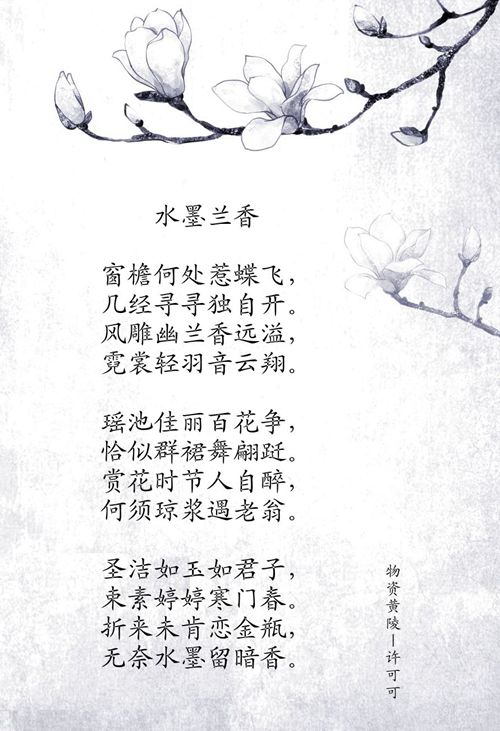 水墨兰香
窗檐何处惹蝶飞，
几经寻寻独自开。
风雕幽兰香远溢，
霓裳轻羽音云翔。
瑶池佳丽百花争，
恰似群裙舞翩跹。
赏花时节人自醉，
何须琼浆遇老翁。
圣洁如玉如君子，
束素婷婷寒门春。
折来未肯恋金瓶，
无奈水墨留暗香。
物资黄陵—许可可